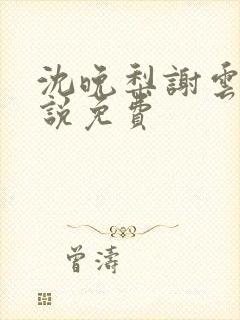 沈晚梨謝雲
說免費
曾濤